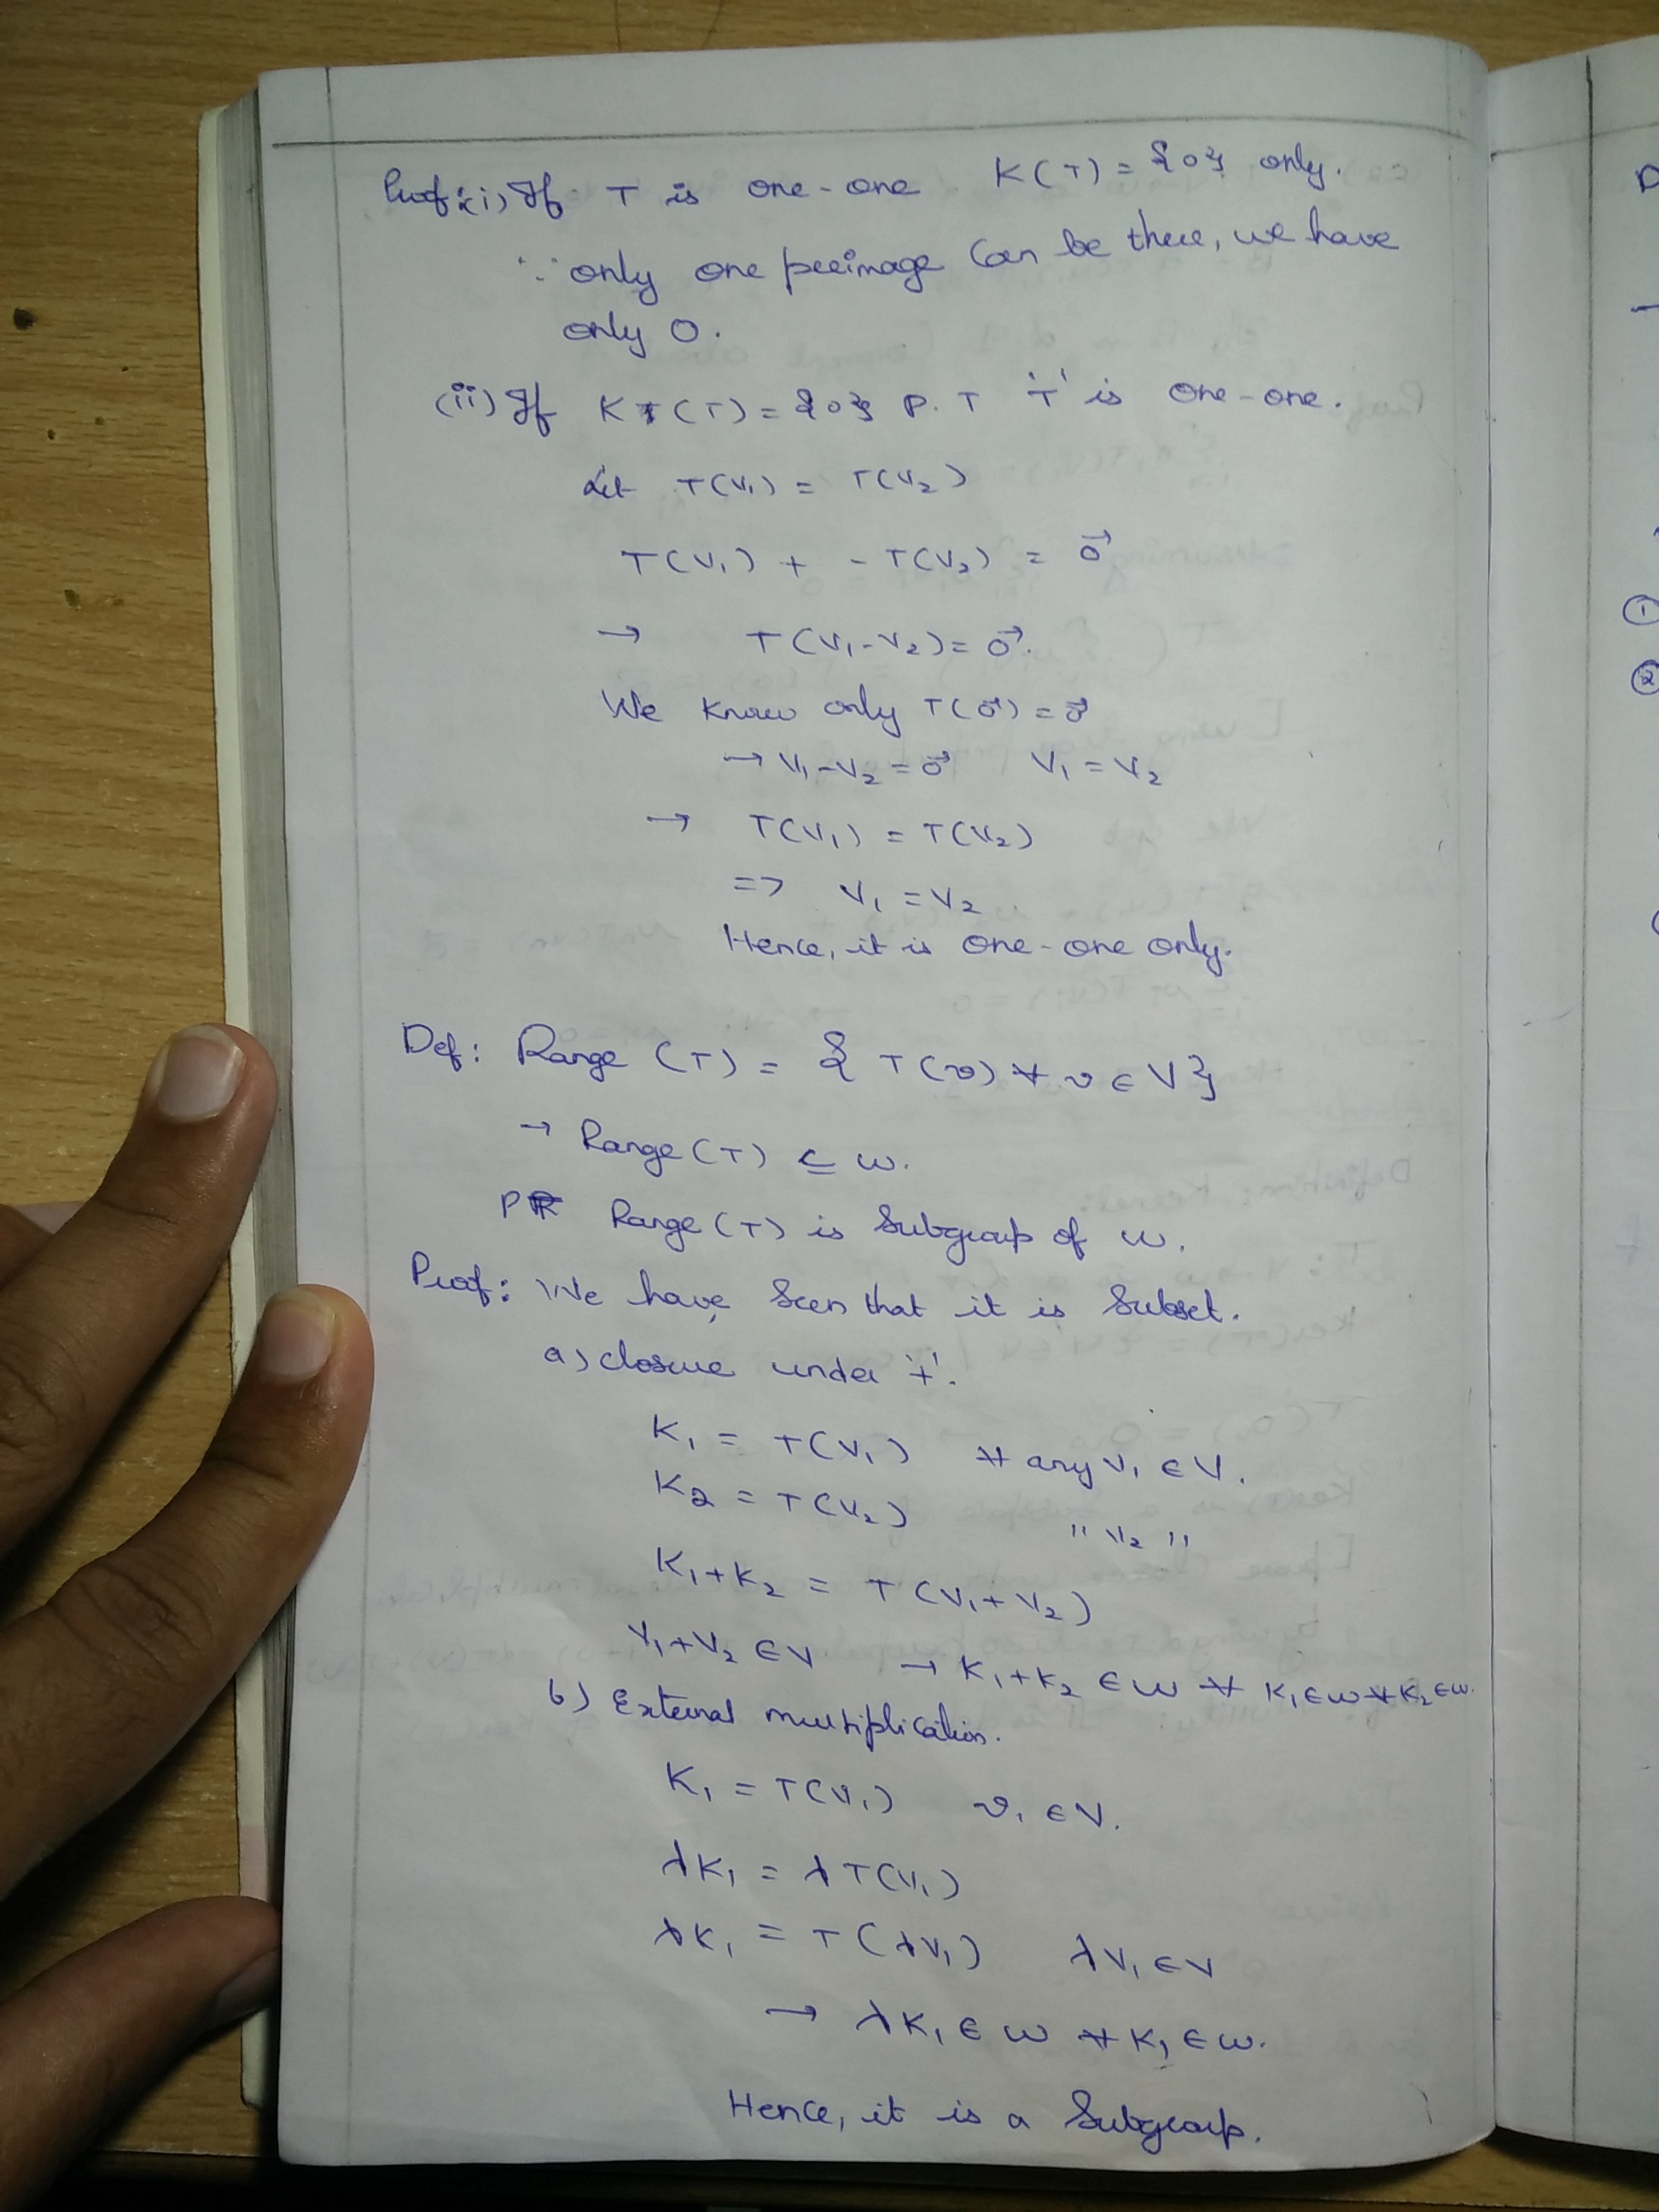 Proof: (i) If T is one-one K(T) = {0} only.
∵ only one preimage can be there, we have
only 0.
(ii) If K(T) = {0} P.T 'T' is one-one.
Let T(V₁) = T(V₂)
T(V₁) + - T(V₂) = 0⃗
→ T(V₁-V₂) = 0⃗.
We know only T(0⃗) = 0⃗
→ V₁-V₂ = 0⃗ V₁ = V₂
→ T(V₁) = T(V₂)
=> V₁ = V₂
Hence, it is one-one only.
Def: Range (T) = { T(v) ∀ v ∈ V}
→ Range(T) ⊆ W.
PT Range(T) is Subgroup of W.
Proof: We have seen that it is Subset.
a) closure under '+'.
K₁ = T(V₁) ∀ any V₁ ∈ V.
K₂ = T(V₂) " V₂ "
K₁+K₂ = T(V₁+V₂)
V₁+V₂ ∈ V → K₁+K₂ ∈ W ∀ K₁ ∈ W ∀ K₂ ∈ W.
b) External multiplication.
K₁ = T(V₁) v₁ ∈ V.
λK₁ = λT(V₁)
λK₁ = T(λV₁) λV₁ ∈ V
→ λK₁ ∈ W ∀ K₁ ∈ W.
Hence, it is a Subgroup.
①
②